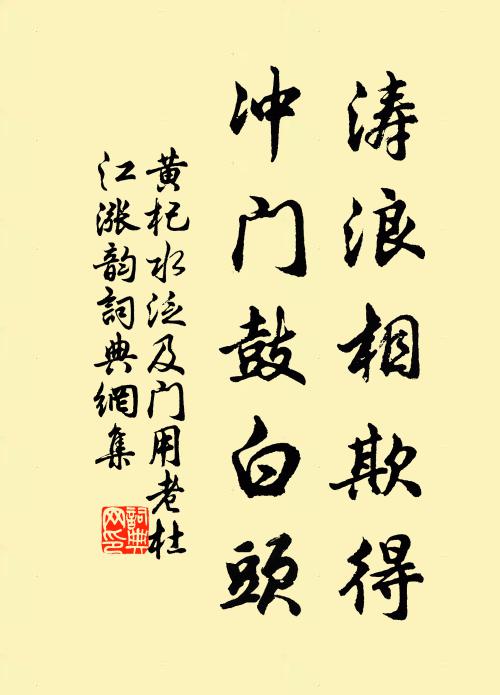 涛浪相欺得
冲门鼓白頭
黄杞水泛及门用老杜
江涨韵詞典網集
詞典網印